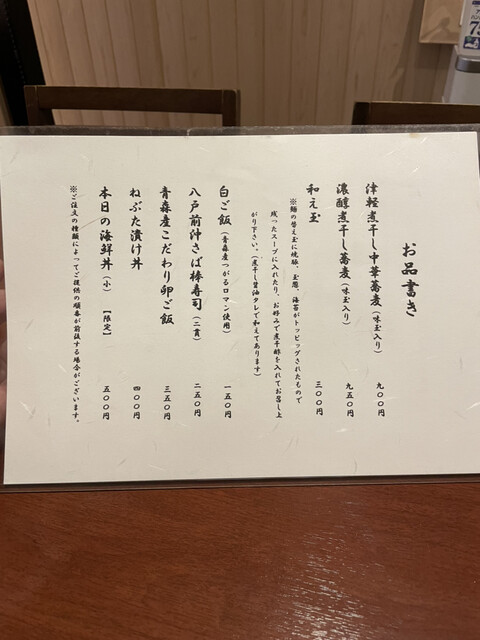 お品書き
津軽煮干し中華蕎麦(味玉入り) 九〇〇円
濃醇煮干し蕎麦(味玉入り) 九五〇円
和え玉 三〇〇円
※麺の替え玉に焼豚、玉葱、海苔がトッピングされたもので
残ったスープに入れたり、お好みで煮干酢を入れてお召し上
がり下さい。(煮干し醤油タレで和えてあります)
白ご飯(青森産つがるロマン使用) 一五〇円
八戸前沖さば棒寿司(二貫) 二五〇円
青森産こだわり卵ご飯 三五〇円
ねぶた漬け丼 四〇〇円
本日の海鮮丼(小)【限定】 五〇〇円
※ご注文の種類によってご提供の順番が前後する場合がございます。